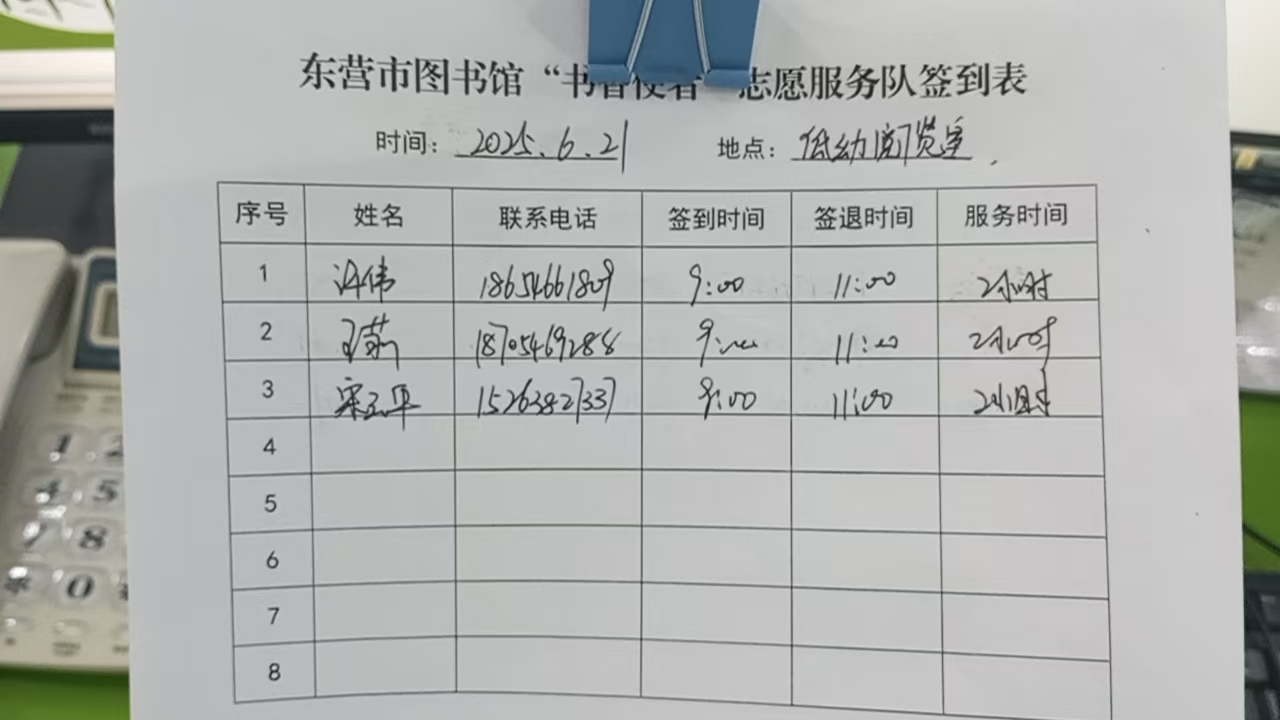 东营市图书馆“书香使者”志愿服务队签到表
时间：2025.6.21 地点：低幼阅览室.
序号 姓名 联系电话 签到时间 签退时间 服务时间
1 许伟 18654661809 9:00 11:00 2小时
2 王莉 18705469288 9:00 11:00 2小时
3 宋玉平 15263827337 9:00 11:00 2小时
4
5
6
7
8
1 2
4 5
7 8
* 0